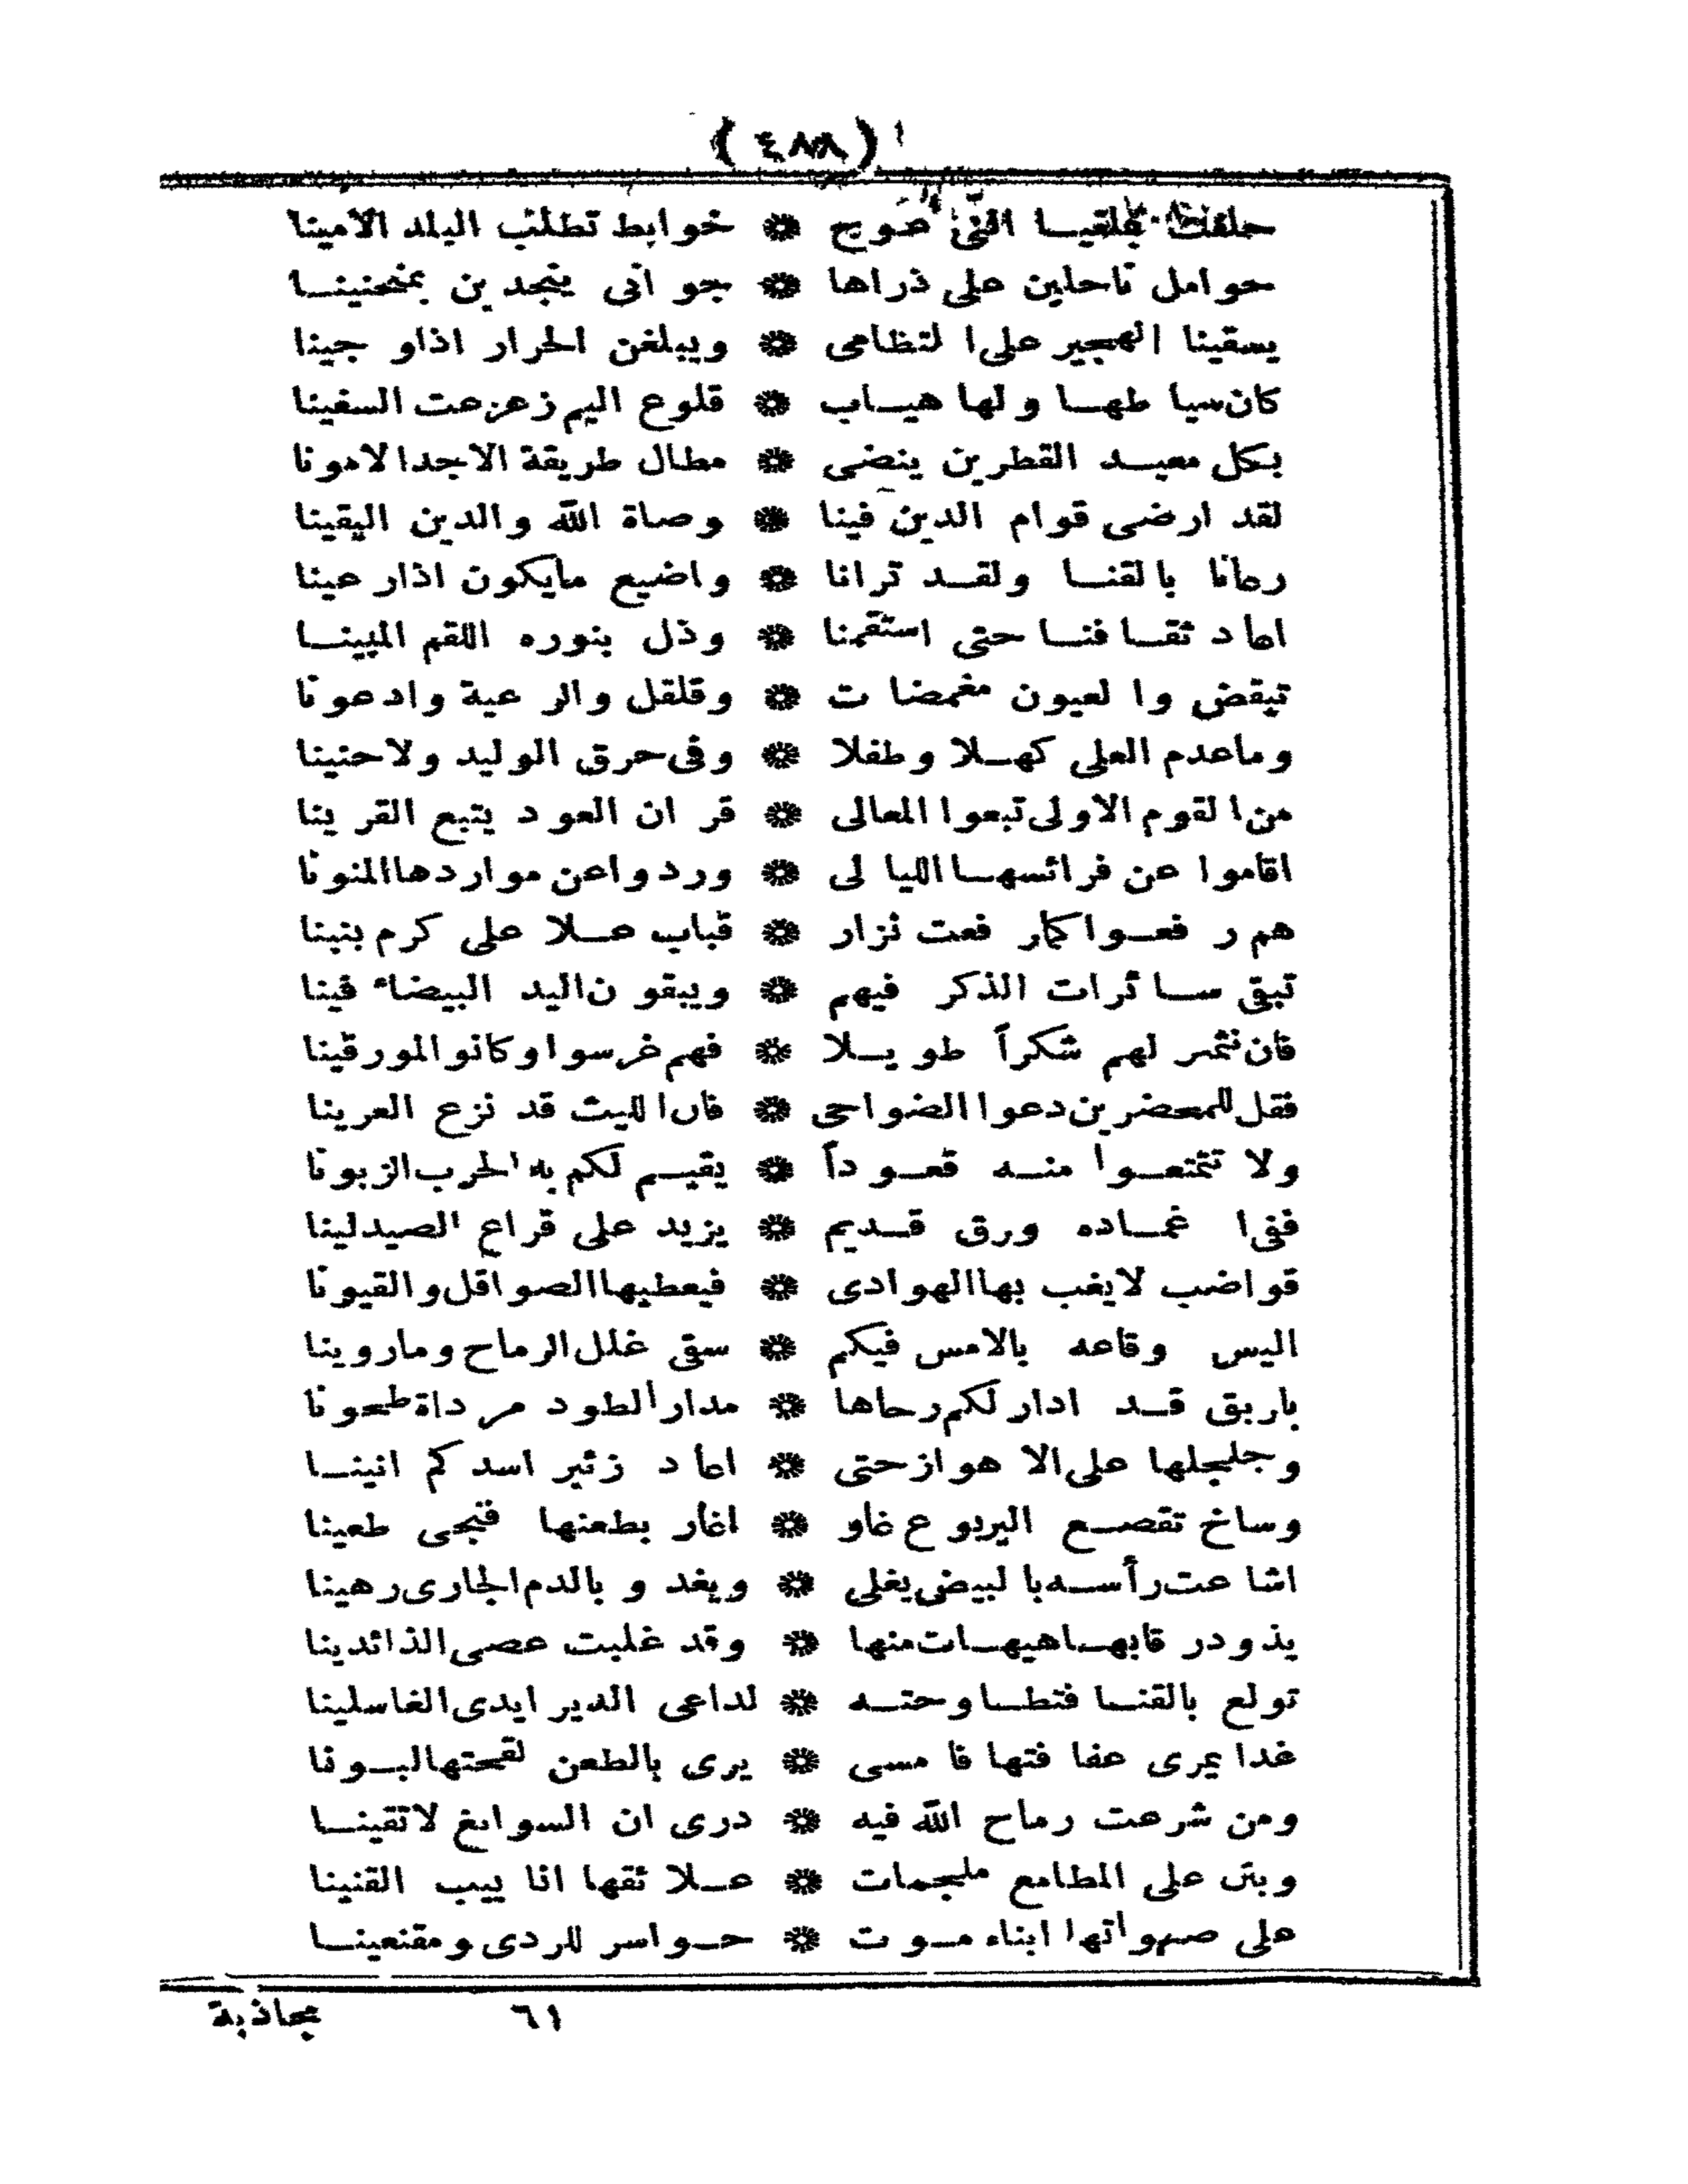 ( ٤٨٨ )
حلفت بملقيا انثى عوج ❋ خوابط تطلب البلد الامينا
حوامل ناحلين على ذراها ❋ جوانى ينجدين بمنحنينا
يسقينا الهجير على التظامى ❋ ويبلغن الحرار اذاو جينا
كان سيا طها ولها هياب ❋ قلوع اليم زعزعت السفينا
بكل معبد القطرين ينضى ❋ مطال طريقة الاجدا لامونا
لقد ارضى قوام الدين فينا ❋ وصاة الله والدين اليقينا
رعانا بالقنا ولقد ترانا ❋ واضيع مايكون اذار عينا
اعاد ثقا فنا حتى استقمنا ❋ وذل بنوره اللقم المبينا
تيقض والعيون مغمضات ❋ وقلقل والر عية وادعونا
وماعدم العلى كهلا وطفلا ❋ وفى حرق الوليد ولاحنينا
من القوم الاولى تبعوا المعالى ❋ قران العود يتبع القرينا
اقاموا عن فرائسها الليالى ❋ وردواعن مواردها المنونا
هم رفعوا كمار فعت نزار ❋ قباب علا على كرم بنينا
تبقى سائرات الذكر فيهم ❋ ويبقون اليد البيضاء فينا
فان نثمر لهم شكراً طويلا ❋ فهم غرسوا وكانو المورقينا
فقل للمحضرين دعوا الضواحى ❋ فان الليث قد نزع العرينا
ولا تتمتعوا منه قعوداً ❋ يقيم لكم به الحرب الزبونا
ففى اغماده ورق قديم ❋ يزيد على قراع الصيد لينا
قواضب لايغب بها الهوادى ❋ فيعطيها الصواقل والقيونا
اليس وقاعه بالامس فيكم ❋ سقى غلل الرماح وماروينا
باربق قد ادار لكم رحاها ❋ مدار الطود مرداة طحونا
وجلجلها على الا هواز حتى ❋ اعاد زئير اسد كم انينا
وساخ تقصع اليربوع غاو ❋ اغار بطعنها فنجى طعينا
اشاعت رأسه بالبيض يغلى ❋ ويغدو بالدم الجارى رهينا
يذودر قابها هيهات منها ❋ وقد غلبت عصى الذائدينا
تولع بالقنا فتطاوحته ❋ لداعى الدير ايدى الغاسلينا
غدا يمرى عفا فتها فامسى ❋ يرى بالطعن لقحتها لبونا
ومن شرعت رماح الله فيه ❋ درى ان السوابغ لاتقينا
وبتن على المطامع ملجمات ❋ علا ثقها انا بيب القنينا
على صهواتها ابناء موت ❋ حواسر للردى ومقنعينا
٦١
مجاذبة